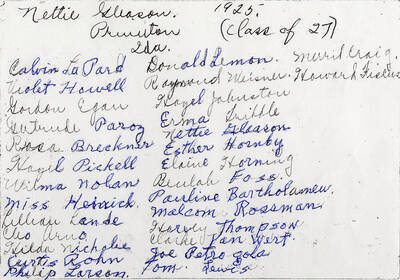 Nettie Gleason. 1925.
Princeton (Class of 27)
Ida.
Calvin La Pard Donald Lemon. Merril Craig.
Violet Howell Raymond Weisner. Howard
Gordon Egan Hazel Johnston
Gertrude Paroz Erma Tribble
Rosa Breckner Nettie Gleason
Hazel Pickell Esther Hornby
Wilma Nolan Elaine Horning
Miss Heinick Beulah Foss.
Lillian Lande Pauline Bartholomew.
Cleo Arno Malcom Rossman
Hilda Nicholie Harvey Thompson
Curtis Bohn Clarke Van Wert.
Philip Larson. Joe Petro Gola
Tom Lewis